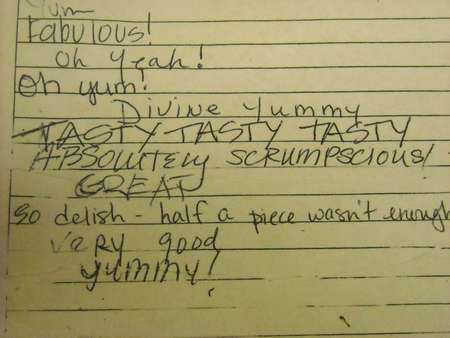 Yum
Fabulous!
Oh Yeah!
Oh yum!
Divine Yummy
TASTY TASTY TASTY
ABSolutely SCRUMPSCIOUS!
GREAT
so delish - half a piece wasn't enough
very good
yummy!